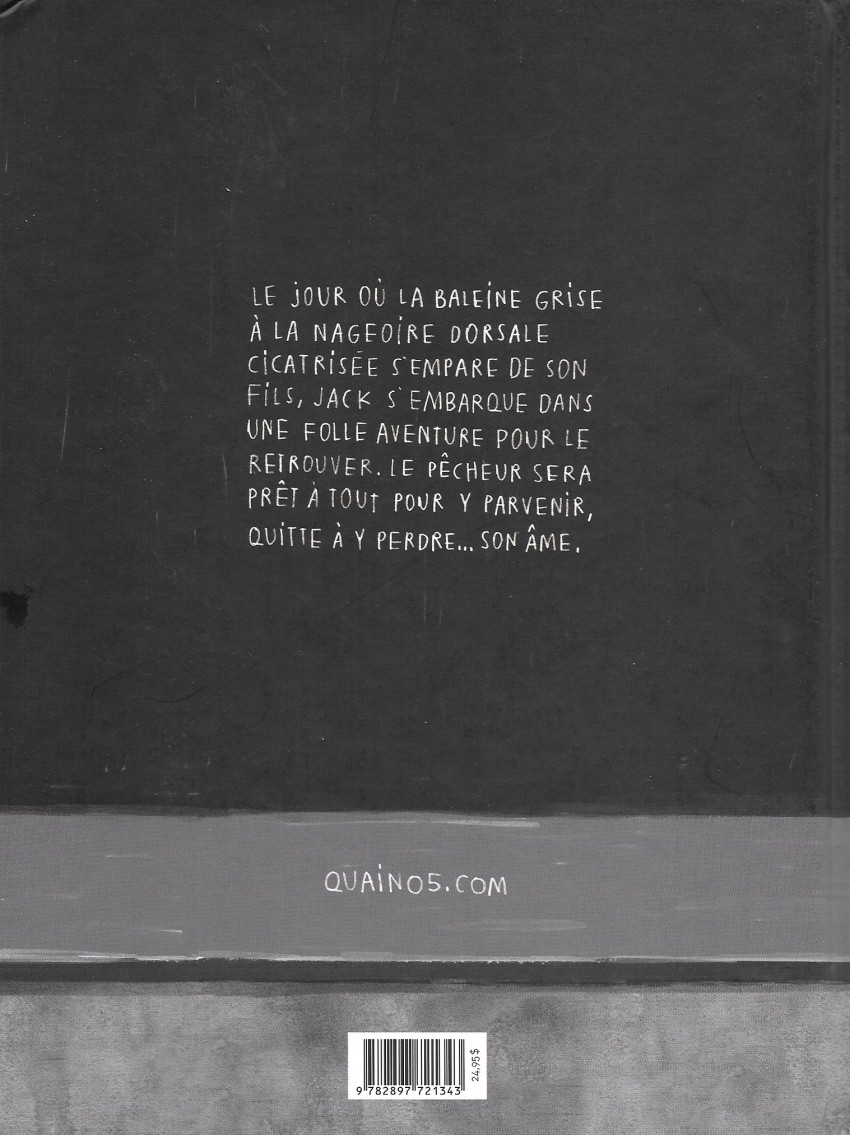 LE JOUR OÙ LA BALEINE GRISE
À LA NAGEOIRE DORSALE
CICATRISÉE S'EMPARE DE SON
FILS, JACK S'EMBARQUE DANS
UNE FOLLE AVENTURE POUR LE
RETROUVER. LE PÊCHEUR SERA
PRÊT À TOUT POUR Y PARVENIR,
QUITTE À Y PERDRE... SON ÂME.
QUAINO5.COM
24,95$
9 782897 721343